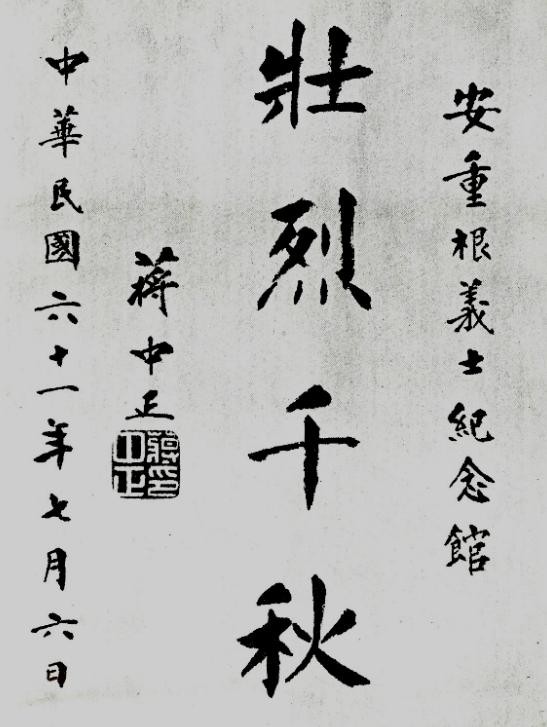 安重根義士紀念館
壯烈千秋
蔣中正
蔣中正印
中華民國六十一年七月六日